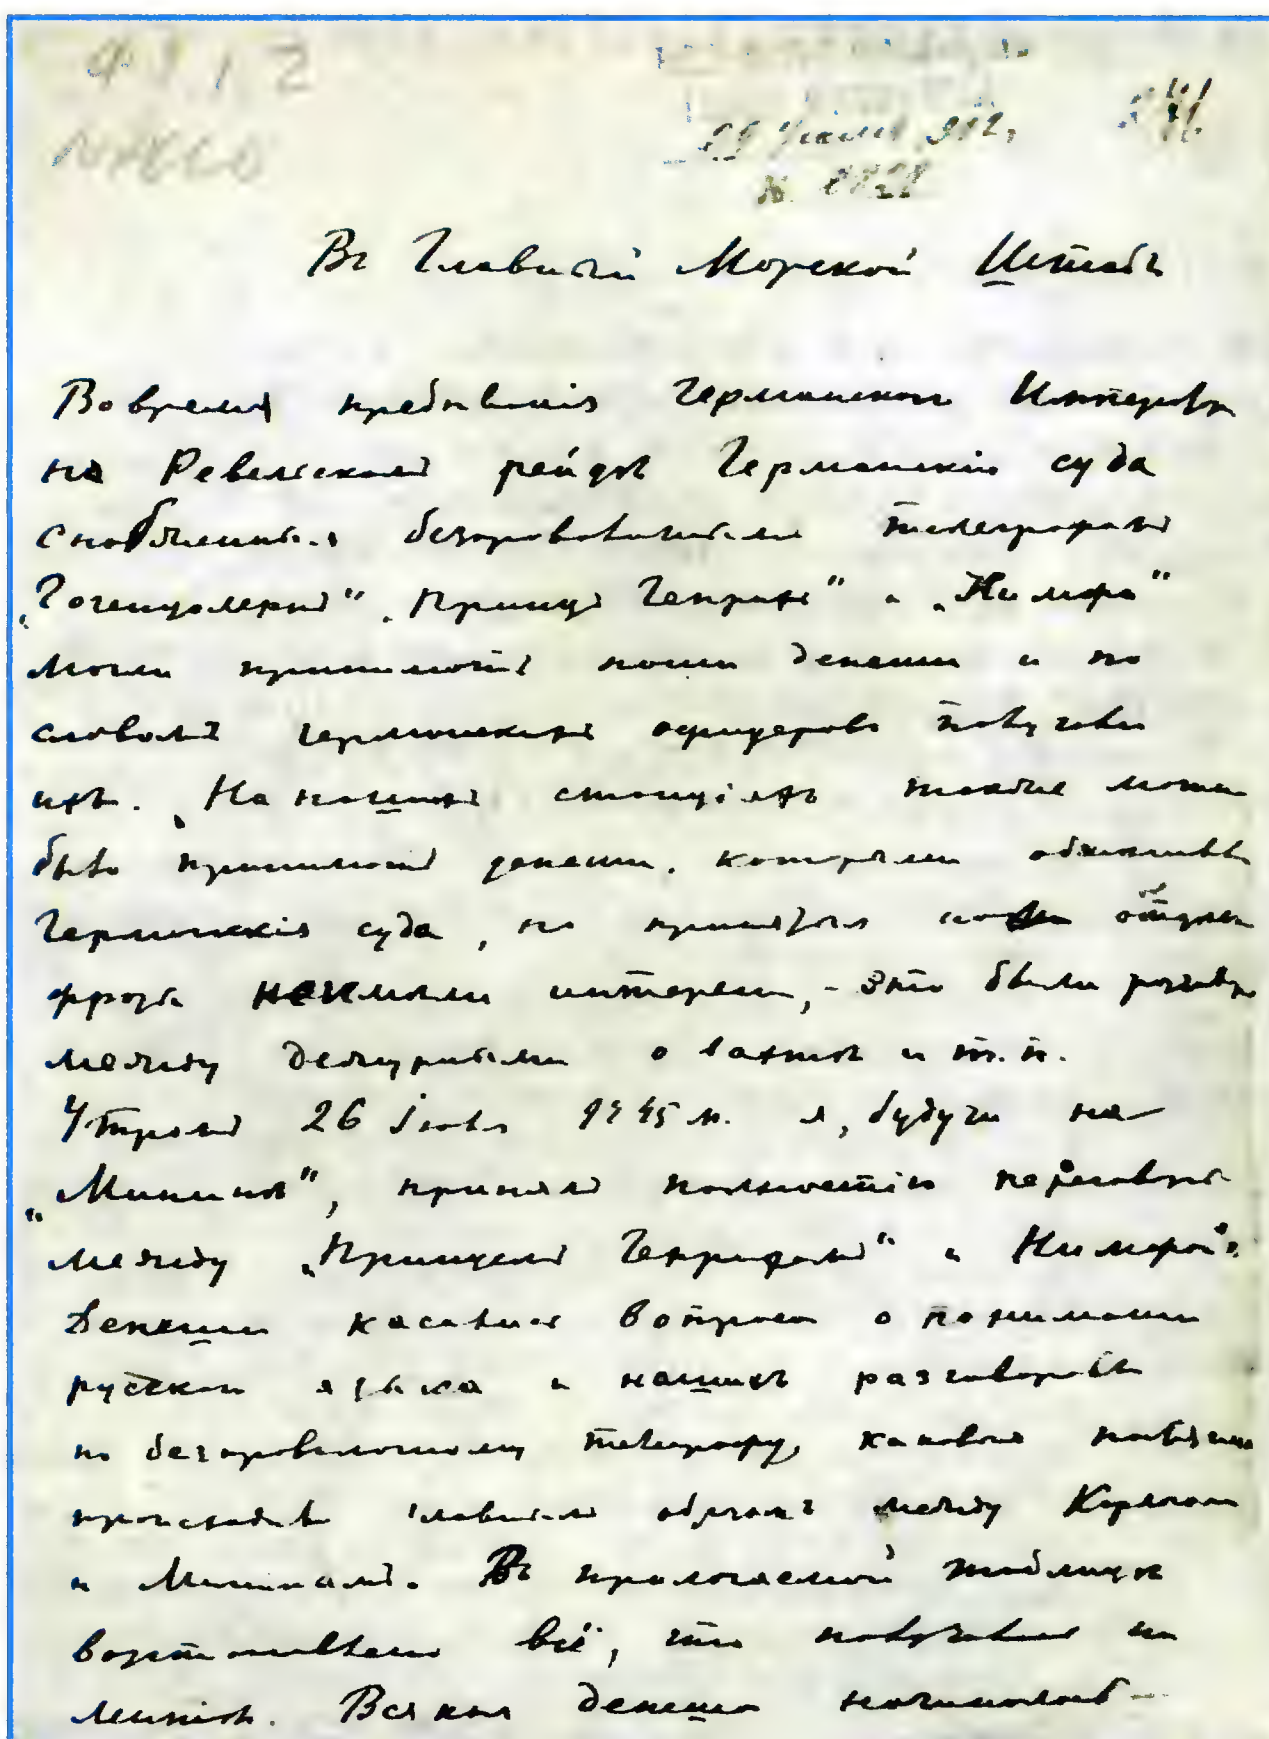 4812
29 Июля 1902 г.
№
Въ Главный Морской Штабъ
Во время пребыванія Германскаго Императора
на Ревельскомъ рейдѣ Германскія суда
снабженныя безпроволочнымъ телеграфомъ
„Гогенцолернъ“ „Принцъ Генрихъ“ и „Нимфа“
могли принимать наши депеши и по
словамъ германскихъ офицеровъ получали
ихъ. На нашихъ станціяхъ также можно
было принимать депеши, которыми обмѣнивались
Германскія суда, но принятыя нами отдѣльныя
фразы не имѣли интереса, - это были разговоры
между дежурными о вахтѣ и т. п.
Утромъ 26 Іюля 9 ч 45 м. я, будучи на
„Мининѣ“, принялъ полностію переговоры
между „Принцемъ Генрихомъ“ и Нимфой“.
Депеши касались вопроса о пониманіи
русскаго языка и нашихъ разговоровъ
по безпроволочному телеграфу, каковые
происходили главнымъ образомъ между Карлосомъ
и Мининымъ. Въ прилагаемой таблицѣ
все, что получалось на
лентѣ. Всякая депеша начиналась